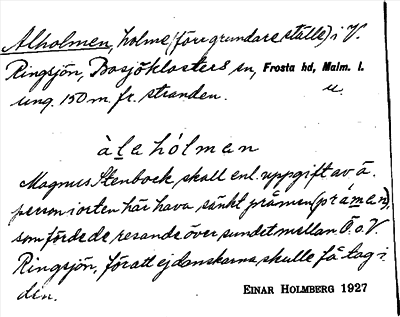 Alholmen, holme (förr grundare ställe) i V.
Ringsjön, Bosjöklosters sn, Frosta hd, Malm. l.
ung. 150 m. fr. stranden. u.
àlahólman
Magnus Stenbock, skall enl. uppgift av ä.
person i orten här hava sänkt pråmen (práman),
som förde de resande över sundet mellan Ö. o. V.
Ringsjön, för att ej danskarna skulle få tag i
den.
EINAR HOLMBERG 1927